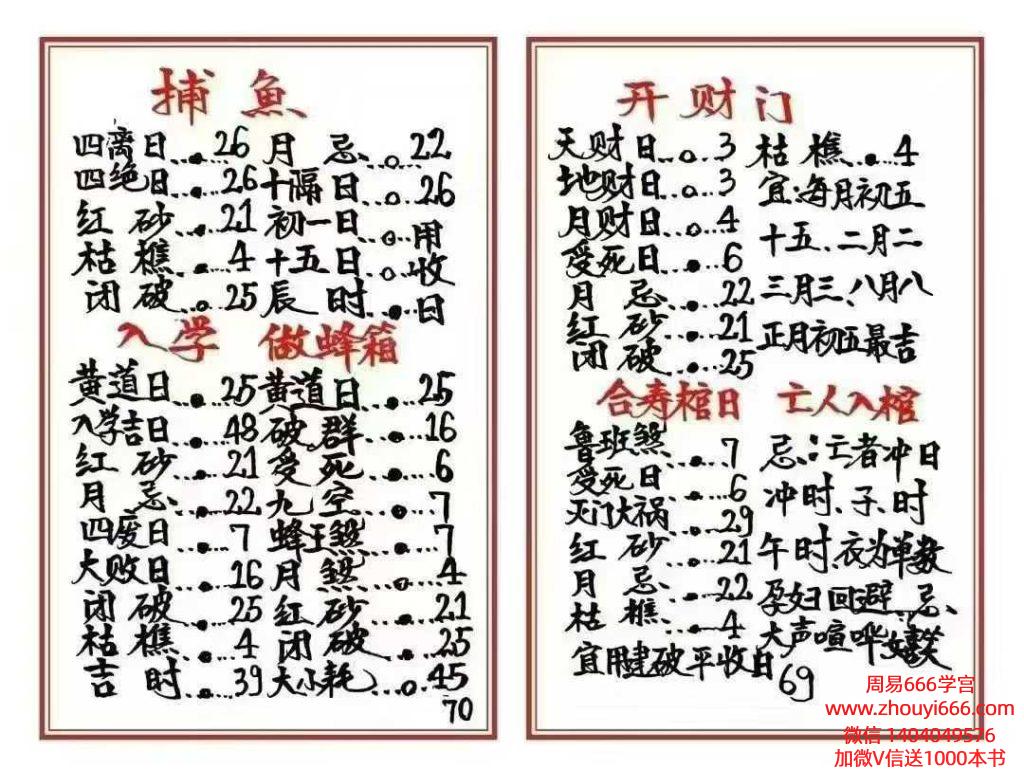 捕魚
四离日...26 月忌...22
四绝日...26 十隔日...26
红砂...21 初一日...用
枯樵...4 十五日...收
闭破...25 辰时...日
入学 做蜂箱
黄道日...25 黄道日...25
入学吉日...48 破群...16
红砂...21 受死...6
月忌...22 九空...7
四废日...7 蜂王煞...7
大败日...16 月煞...4
闭破...25 红砂...21
枯樵...4 闭破...25
吉时...39 大小耗...45
70
开财门
天财日...3 枯樵...4
地财日...3 宜:每月初五
月财日...4 十五、二月二
受死日...6 三月三、八月八
月忌...22 正月初五最吉
红砂...21
闭破...25
合寿棺日 亡人入棺
鲁班煞...7 忌:亡者冲日
受死日...6 冲时、子时
灭门大祸...29 午时、衣为单数
红砂...21 孕妇回避、忌、
月忌...22 大声喧哗
枯樵...4
宜用建破平收日
69
周易666学宫
www.zhouyi666.com
微信 1404049576
加微V信送1000本书